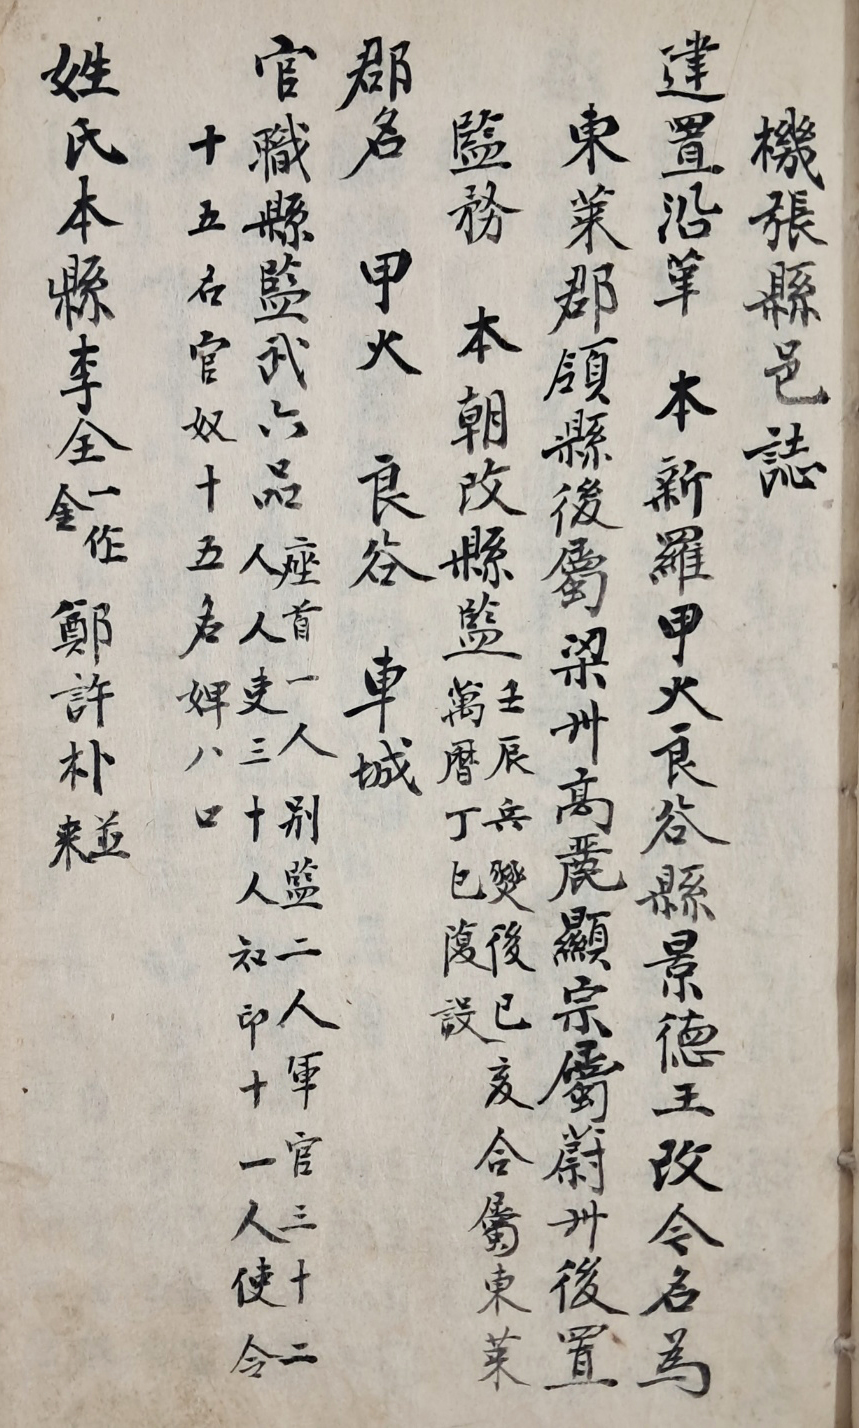 機張縣邑誌
建置沿革 本新羅甲火良谷縣景德王改今名為
東萊郡領縣後屬梁州高麗顯宗屬蔚州後置
監務 本朝改縣監
壬辰兵燹後己亥合屬東萊
萬曆丁巳復設
郡名 甲火 良谷 車城
官職縣監武六品
座首一人別監二人軍官三十二
人人吏三十人知印十一人使令
十五名官奴十五名婢八口
姓氏本縣李全
一作
金
鄭許朴
並
來